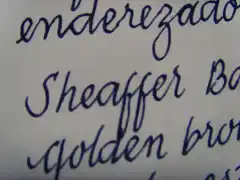 enderezado
Sheaffer Ba
golden bro